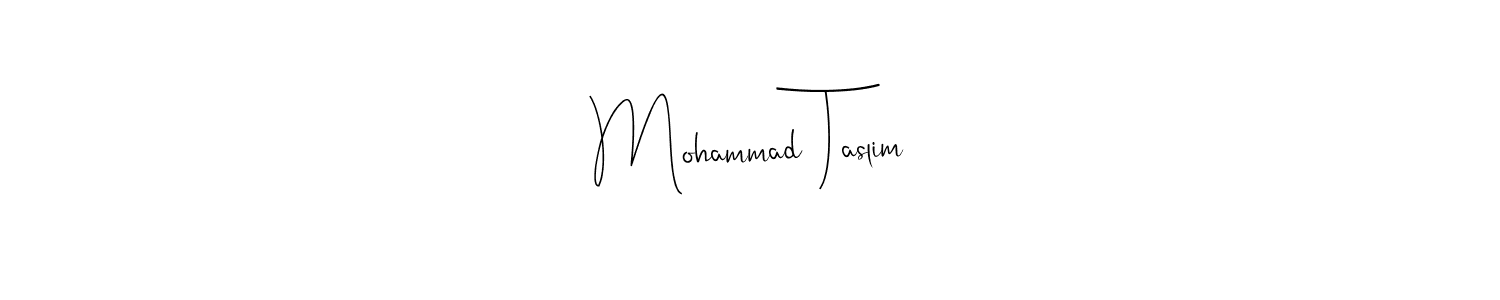 Mohammad Taslim